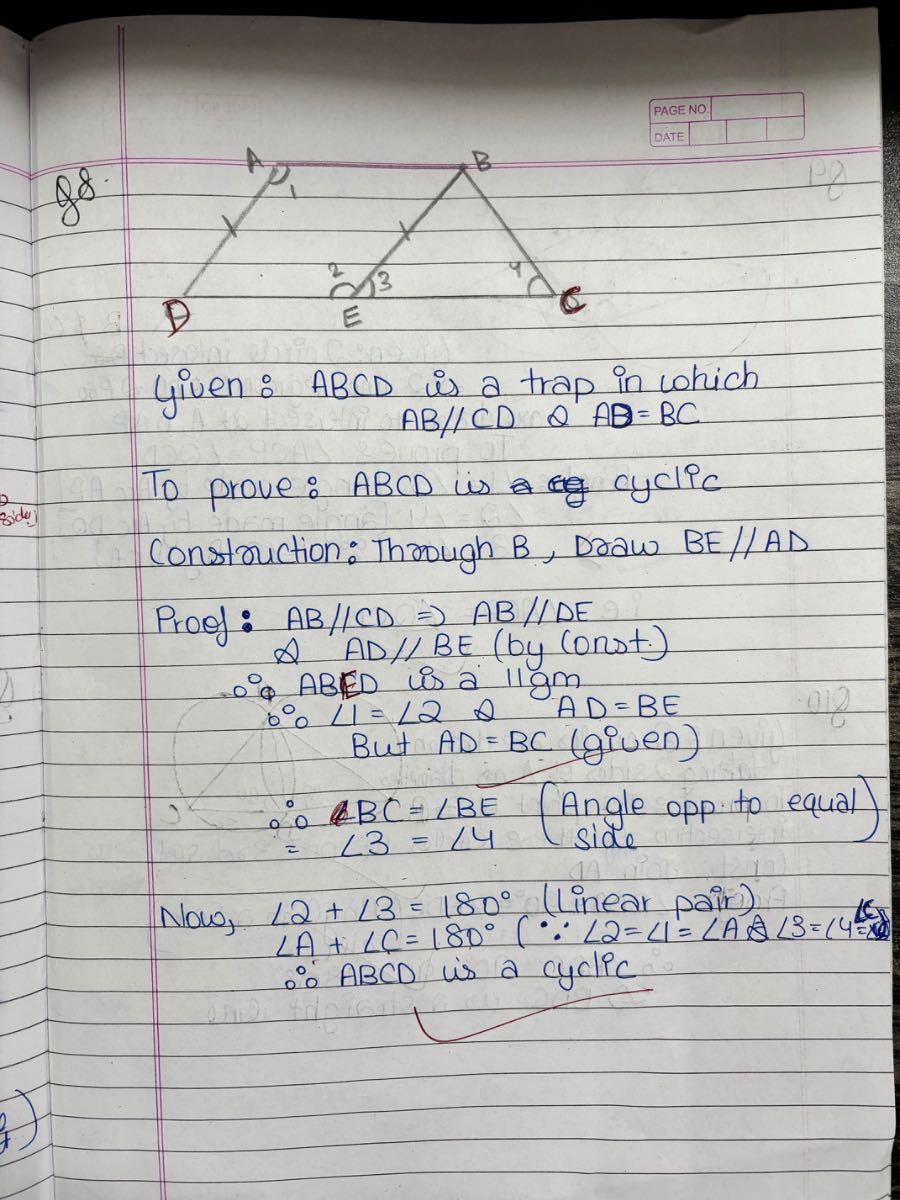 PAGE NO.
DATE
Q8.
A B
1
2 3 4
D E C
Given: ABCD is a trap in which
AB//CD & AD = BC
To prove: ABCD is a cyclic
Construction: Through B, Draw BE//AD
Proof: AB//CD => AB//DE
& AD//BE (by Const.)
∴ ABED is a 11gm
∴ ∠1 = ∠2 & AD = BE
But AD = BC (given)
∴ ∠BC = ∠BE (Angle opp. to equal
= ∠3 = ∠4 side)
Now, ∠2 + ∠3 = 180° (Linear pair)
∠A + ∠C = 180° (∵ ∠2 = ∠1 = ∠A & ∠3 = ∠4 = ∠C
∴ ABCD is a cyclic
side)